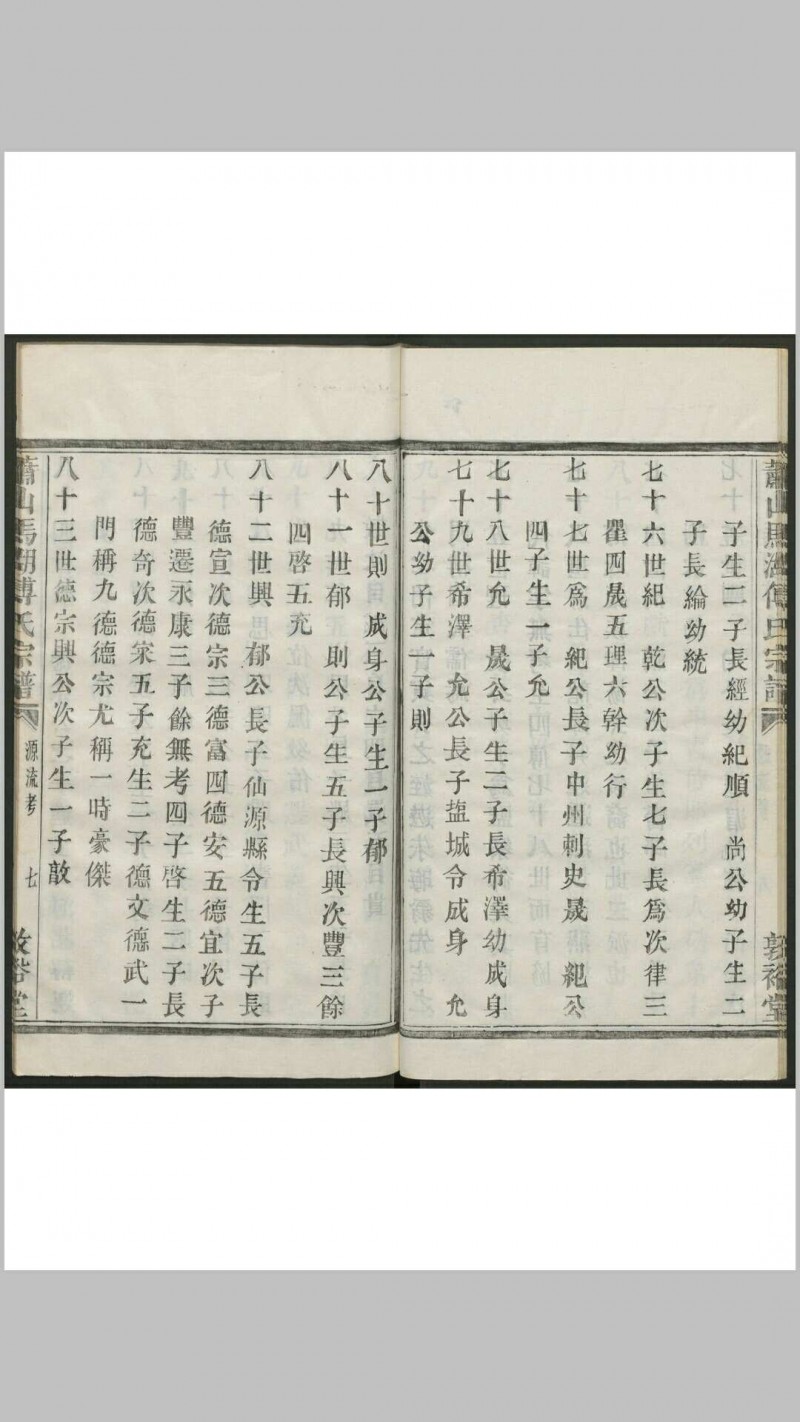 子生二子長經幼紀順　尚公幼子生二
子長綸幼統
七十六世紀　乾公次子生七子長爲次律三
瞿四晟五理六幹幼行
七十七世爲　紀公長子中州刺史晟　紀公
四子生一子允
七十八世允　晟公子生二子長希澤幼成身
七十九世希澤　允公長子塩城令成身　允
公幼子生一子則
八十世則　成身公子生一子郁
八十一世郁　則公子生五子長興次豐三餘
四啓五充
八十二世興　郁公長子仙源縣令生五子長
德宣次德宗三德富四德安五德宜次子
豐遷永康三子餘無考四子啓生二子長
德奇次德宷五子充生二子德文德武一
門稱九德德宗尤稱一時豪傑
八十三世德宗興公次子生一子敼
蕭山馬湖傅氏宗譜
源流考
七